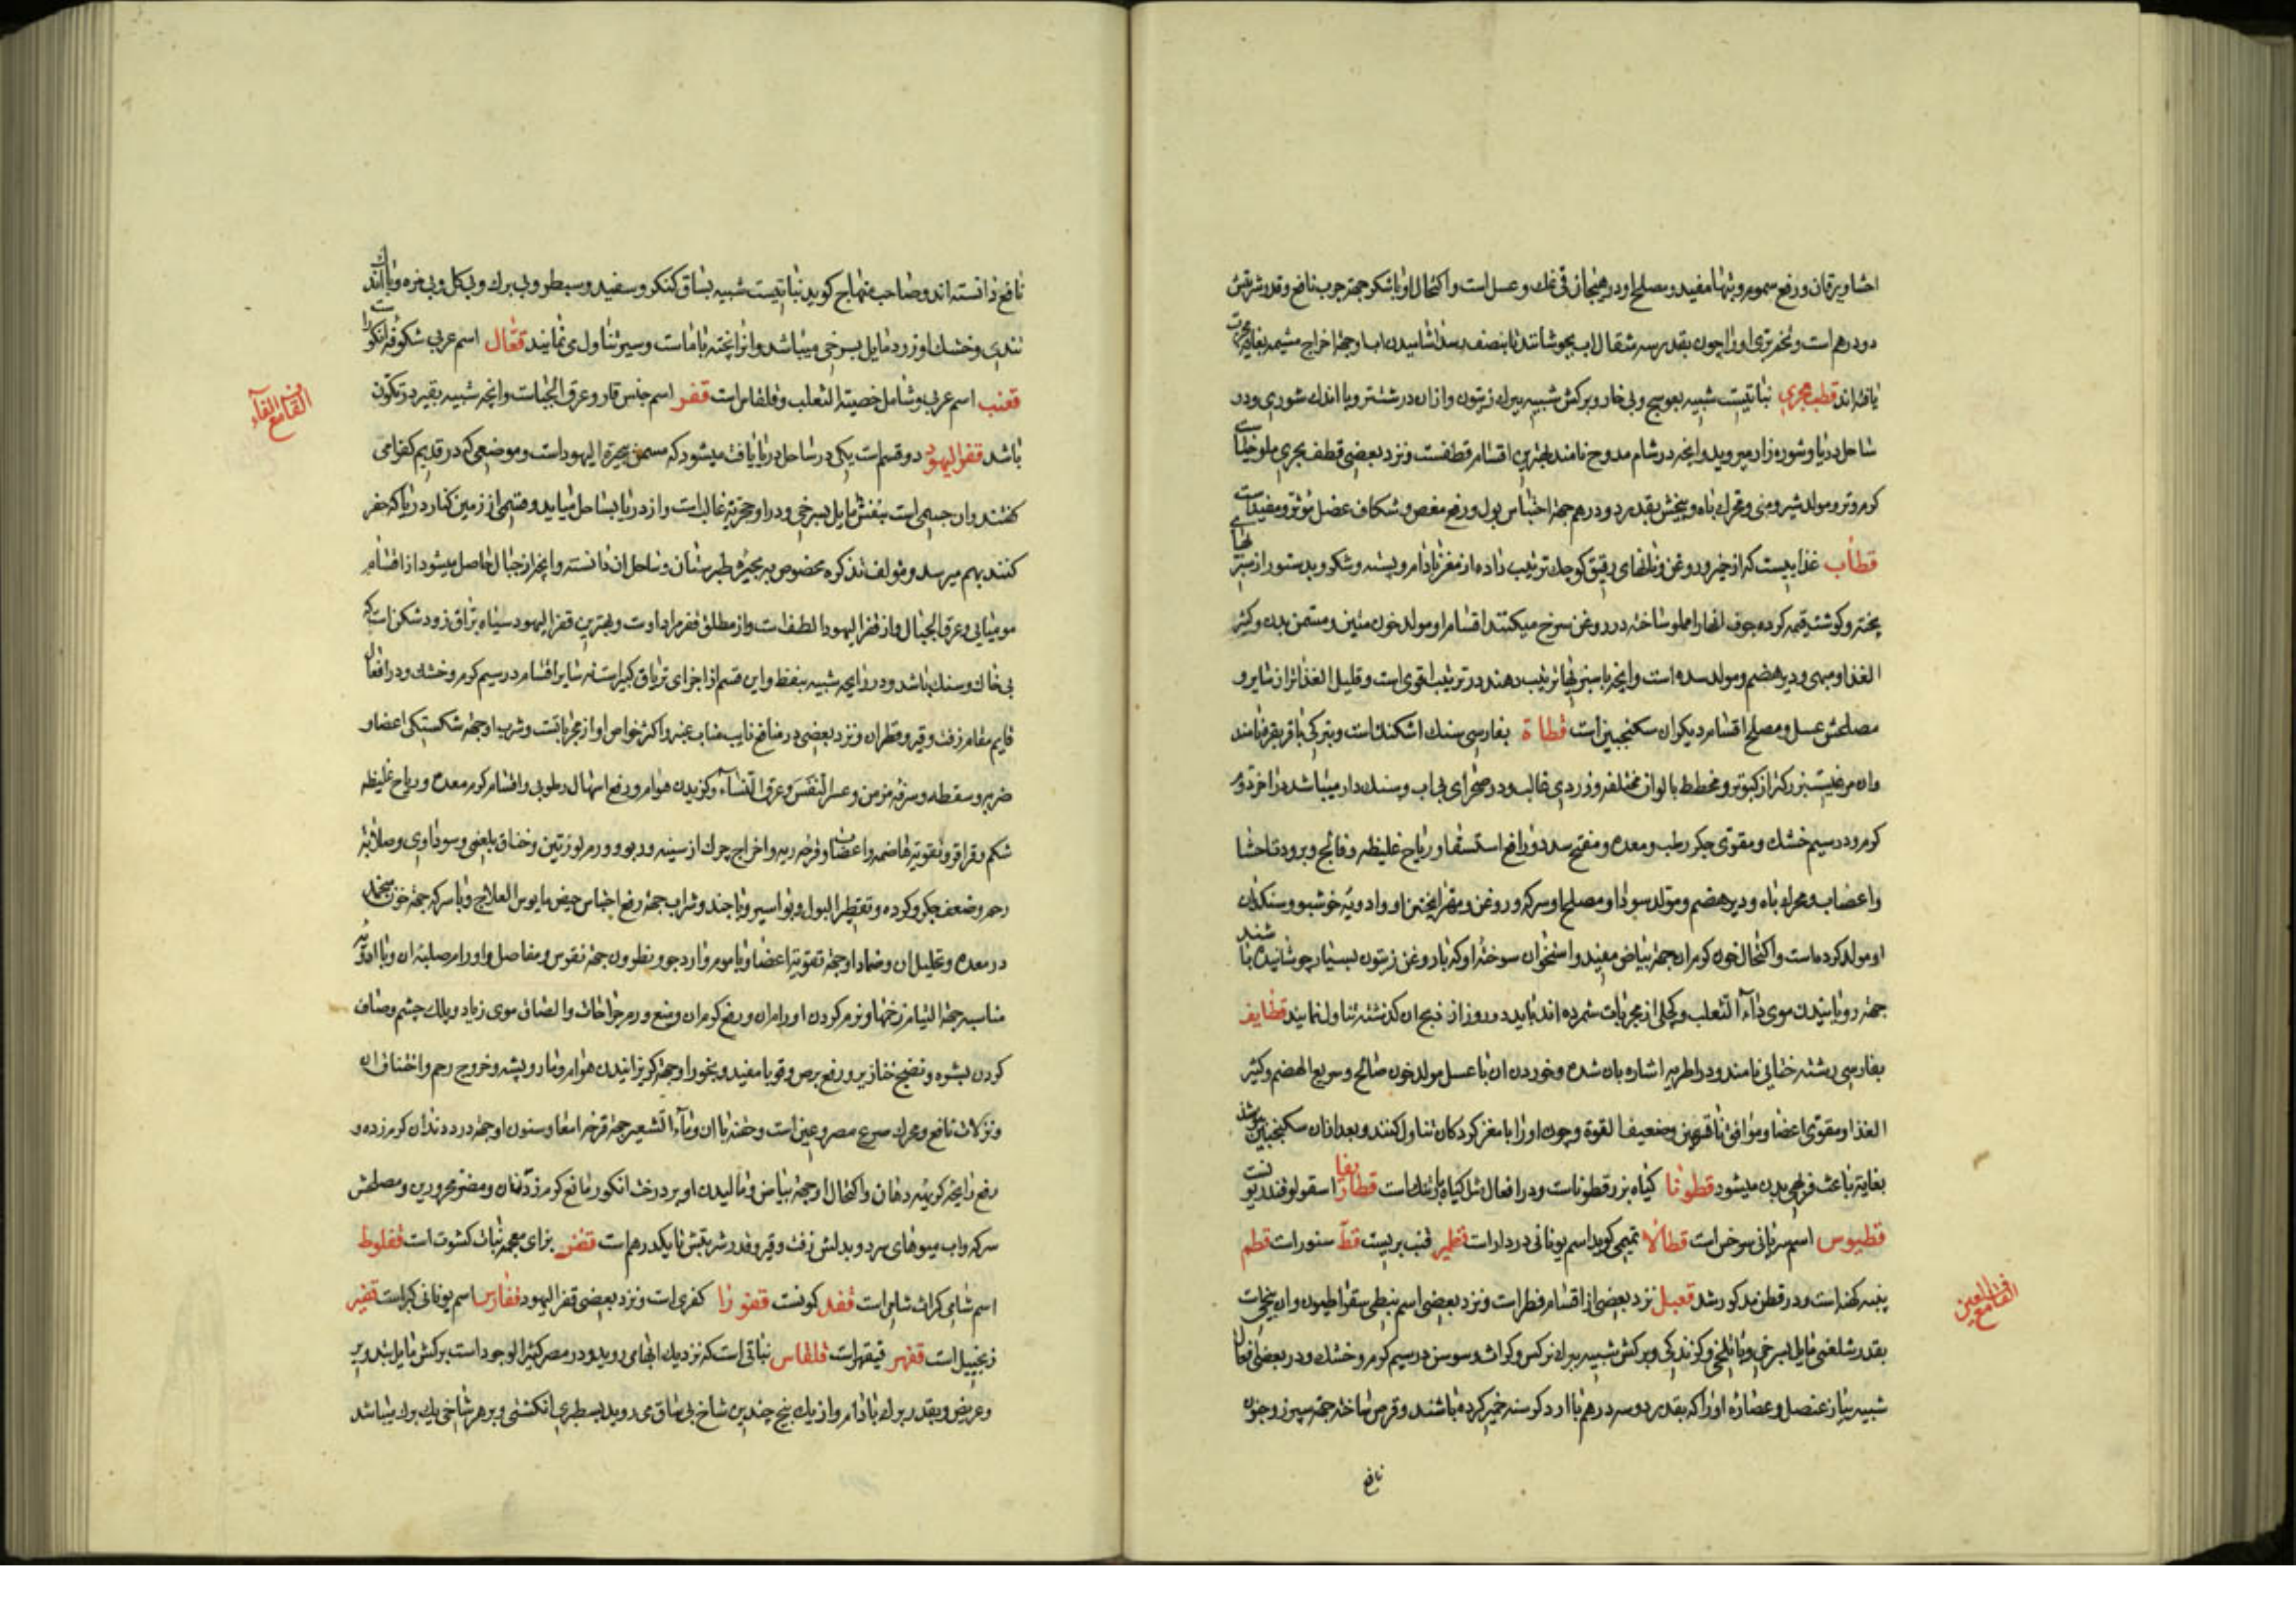 احشا و یرقان و رفع سموم و تبها مفید و مصلح او در هیجان قی نمک و عسل است و اکتحال او با شکر جهة جرب نافع و قدر شربتش
دو درهم است و تخم بری او را چون بقدر سه مثقال با آب بجوشانند تا بنصف رسد آشامیدن آب او جهة اخراج مشیمه بغایة مجرب
یافته‌اند قطف بحری نباتیست شبیه بعوسج و بی خار و برکش شبیه ببرک زیتون و از ان درشت‌تر و با اندک شوری و در
ساحل دریا و شوره‌زار میروید و انچه در شام مدوح نامند بهترین اقسام قطفست و نزد بعضی قطف بحری ملوخیاست
کرم و تر و مولد شیر و منی و محرک باه و بیخش بقدر دو درهم جهة احتباس بول و رفع مغص و شکاف عضل مؤثر و مفید است
قطاب غذاییست که از خمیر و روغن و نانهای رقیق کوچک ترتیب داده از مغز بادام و پسته و شکر و بدستور از سبزیهای
پخته و کوشت قیمه کرده جوف انها را مملو ساخته در روغن سرخ میکنند اقسام او مولد خون متین و مسمن بدن و کثیر
الغذا و مبهی و دیرهضم و مولد سده است و انچه با سبزیها ترتیب دهند در ترتیب اقوی است و قلیل الغذاتر از سایر و
مصلحش عسل و مصلح اقسام دیکر ان سکنجبین است قطاة بفارسی سنک اشکنک است و بترکی باقرقره نامند
و ان مرغیست بزرکتر از کبوتر و مخطط بالوان مختلفه و زردی غالب و در صحرای بی اب و سنک دار میباشد در اخر دوم
کرم و در سیم خشک و مقوی جکر رطب و معده و مفتح سدد و رافع استسقا و ریاح غلیظه و فالج و برودت احشا
و اعصاب و محرک باه و دیرهضم و مولد سودا و مصلح او سرکه و روغن و مهرا پختن او و ادویۀ خوشبو و سنکدان
او مولد کرده است و اکتحال خون کرم ان جهة بیاض مفید و استخوان سوخته او که با روغن زیتون بسیار جوشانیده باشند
جهة رویانیدن موی داء الثعلب و کچلی از مجربات شمرده‌اند باید دو روز از ذبح ان کذشته تناول نمایند قطایف
بفارسی رشته ختایی نامند و در اطریه اشاره بان شده و خوردن ان با عسل مولد خون صالح و سریع الهضم و کثیر
الغذا و مقوی اعضا و موافق ناقهین و ضعیف القوة و چون او را با مغز کردکان تناول کنند و بعد از ان سکنجبین بنوشند
بغایة باعث فربهی بدن میشود قطونا کیاه بزر قطوناست و در افعال مثل کیاه بارتنک است قطاریفا اسقولوقندریونست
قطیوس اسم سریانی سرخس است قطالا تمیمی کوید اسم یونانی دردار است قطیر قنب بریست قط سنور است قطم
پنبه کهنه است و در قطن مذکور شد قعبل نزد بعضی از اقسام فطر است و نزد بعضی اسم نبطی سقراطیون و ان بیخیست
بقدر شلغمی مایل بسرخی و با تلخی و کزندکی و برکش شبیه ببرک نرکس و کراث و سوسن در سیم کرم و خشک و در بعضی افعال
شبیه بپیاز عنصل و عصارۀ او را که بقدر دو سه درهم با ارد کرسنه خمیر کرده باشند و قرص ساخته جهة سپرز و جنون
نافع
القاف مع العین
نافع دانسته‌اند و صاحب منهاج کوید نباتیست شبیه بساق کنکر و سفید و سبطر و بی برک و بی کل و بی مزه و با اندک
تندی و خشک او زرد مایل بسرخی میباشد و انرا پخته با ماست و سیر تناول می نمایند قعال اسم عربی شکوفه انکور است
قعنب اسم عربی و شامل خصیة الثعلب و قلقاس است قفر اسم جنس قار و عرق الجبالست و انچه شبیه بقیر در تکون
باشد قفر الیهود دو قسم است یکی در ساحل دریا یافت میشود که مسمی ببحیرة الیهود است و موضعی که در قدیم کفرامی
کفتند و ان جسمی است بنفش مایل بسرخی و در او حجریة غالب است و از دریا بساحل میاید و قسمی از زمین کنار دریا که حفر
کنند بهم میرسد و مؤلف تذکره مخصوص ببحیرۀ طبرستان و ساحل ان دانسته و انچه از جبال حاصل میشود از اقسام
مومیایی و عرق الجبال و از قفر الیهود الطف است و از مطلق قفر مراد اوست و بهترین قفر الیهود سیاه براق زود شکن است که
بی خاک و سنک باشد و در رایحه شبیه بنفط و این قسم از اجزای تریاق کبیر است نه سایر اقسام در سیم کرم و خشک و در افعال
قایم مقام زفت و قیر و قطران و نزد بعضی در منافع نایب مناب عنبر و اکثر خواص او از مجرباتست و شرب او جهة شکستکی اعضا و
ضربه و سقطه و سرفه مزمن و عسر النفس و عرق النساء و کزیدن هوام و رفع اسهال رطوبی و اقسام کرم معده و ریاح غلیظه
شکم و قراقر و تقویة هاضمه و اعضا و قرحه ریه و اخراج چرک از سینه و ربو و ورم لوزتین و خناق بلغمی و سوداوی و صلابة
رحم و ضعف جکر و کرده و تقطیر البول و بواسیر و با جند و شراب جهة رفع احتباس حیض مایوس العلاج و با سرکه جهة خون منجمد
در معده و تحلیل ان و ضماد او جهة تقویة اعضا و با موم و ارد جو و نطرون جهة نقرس و مفاصل و اورام صلبه ان و با ادویه
مناسبه جهة التیام زخمها و نرم کردن اورام ان و رفع کرم ان و منع ورم جراحات و الصاق موی زیاد و پلک چشم و صاف
کردن بشره و نضج خنازیر و رفع برص و قوبا مفید و بخور او جهة کریزانیدن هوام و مار و پشه و خروج رحم و اختناق ان
و نزلات نافع و محرک صرع مصروعین است و حقنه با ان و ماء الشعیر جهة قرحه امعا و سنون او جهة درد دندان کرم زده و
رفع رایحه کریهه دهان و اکتحال او جهة بیاض و مالیدن او بر درخت انکور مانع کرم زدن ان و مضر محرورین و مصلحش
سرکه و اب میوهای سرد و بدلش زفت و قیر و قدر شربتش تا یکدرهم است قفز بزای معجمه نبات کشوث است قفلوط
اسم شامی کراث شامی است قفد کونست قفورا کفری است و نزد بعضی قفر الیهود قفارس اسم یونانی کبر است قفیر
زنجبیل است قفهر قیقهر است قلقاس نباتی است که نزدیک ابها می روید و در مصر کثیر الوجود است برکش مایل بتدویر
و عریض و بقدر برک بادام و از یک بیخ چندین شاخ بی ساق می روید بسطبری انکشتی و بر هر شاخی یک برک میباشد
القاف مع الفاء